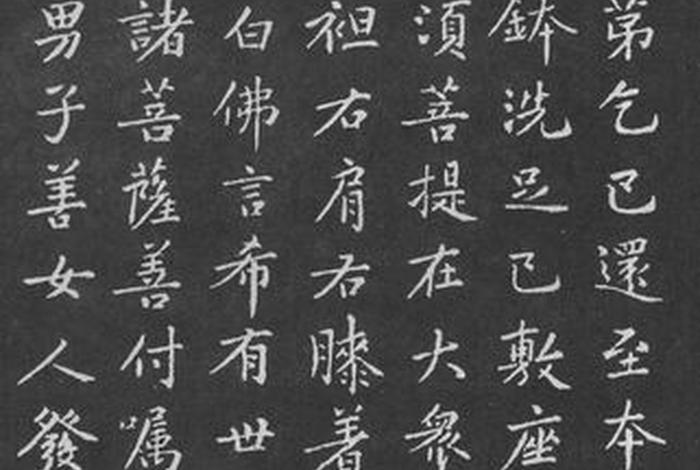 第乞已還至本
鉢洗足已敷座
須菩提在大衆
袒右肩右膝着
白佛言希有世
諸菩薩善付嘱
男子善女人發